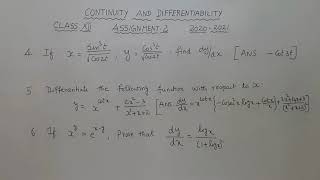 CONTINUITY AND DIFFERENTIABILITY
CLASS XII ASSIGNMENT 2 2020-2021
4. If x = sin³t/√cos2t, y = cos³t/√cos2t find dy/dx [ANS -cot3t]
5 Differentiate the following function with respect to x:
y = x^cotx + (2x²-3)/(x²+x+2) [Ans dy/dx = x^cotx
6 If x^y = e^(x-y), Prove that dy/dx = logx/(1+logx)²